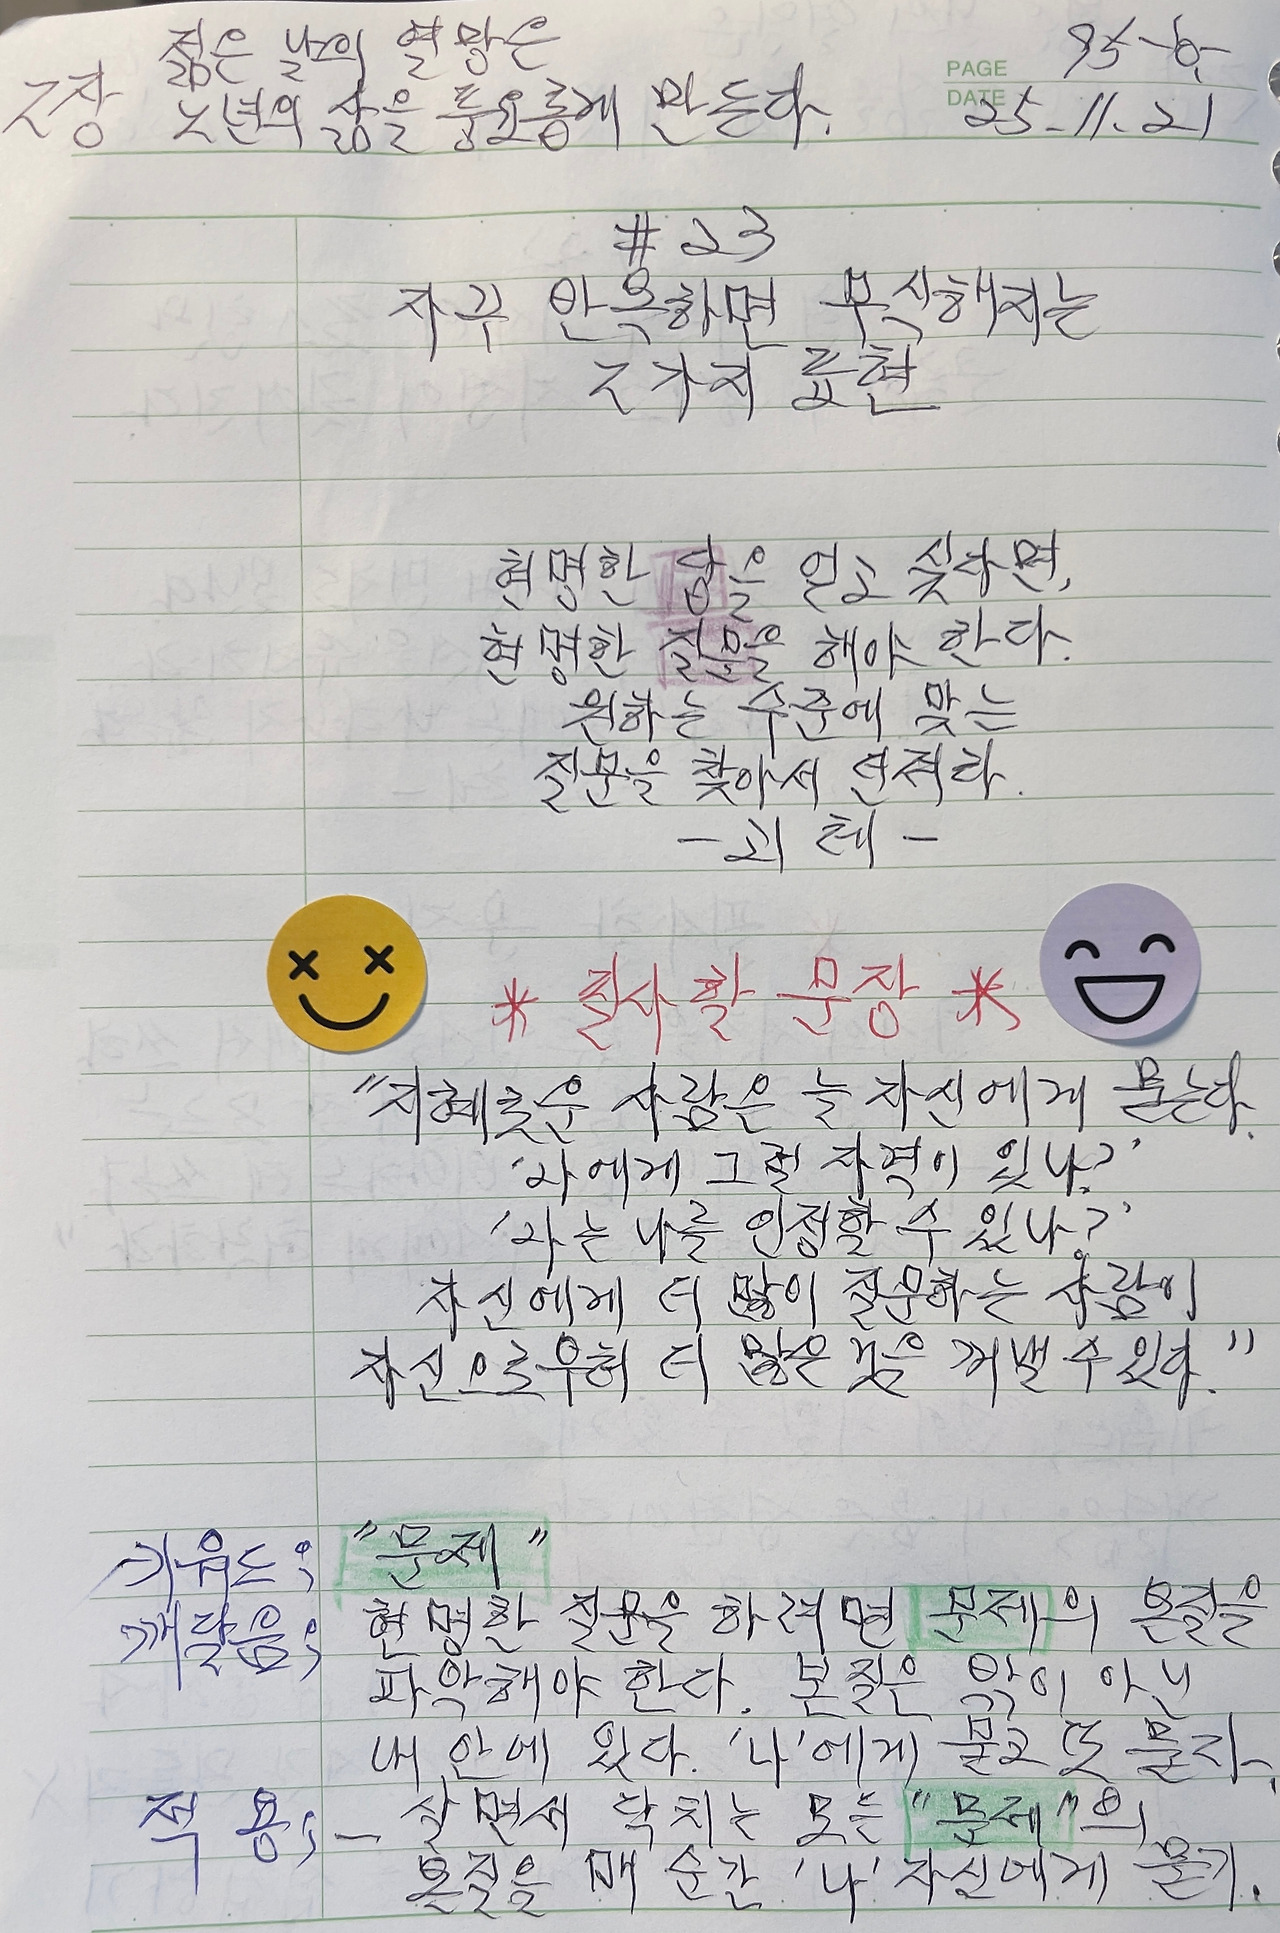 2장 젊은 날의 열망은
노년의 삶을 풍요롭게 만든다.
PAGE
DATE 25.11.21
#23
자꾸 반복하면 무식해지는
7가지 표현
현명한 답을 얻고 싶다면,
현명한 질문을 해야 한다.
원하는 수준에 맞는
질문을 찾아서 던져라.
-괴테-
* 필사할 문장 *
"지혜로운 사람은 늘 자신에게 묻는다.
'나에게 그럴 자격이 있나?'
'나는 나를 인정할 수 있나?'
자신에게 더 많이 질문하는 사람이
자신으로부터 더 많은 것을 꺼낼 수 있다."
키워드; "문제"
깨달음; 현명한 질문을 하려면 문제의 본질을
파악해야 한다. 본질은 밖이 아닌
내 안에 있다. '나'에게 묻고 또 묻자.
적용; - 살면서 닥치는 모든 "문제"의
본질을 매 순간 '나' 자신에게 묻기.